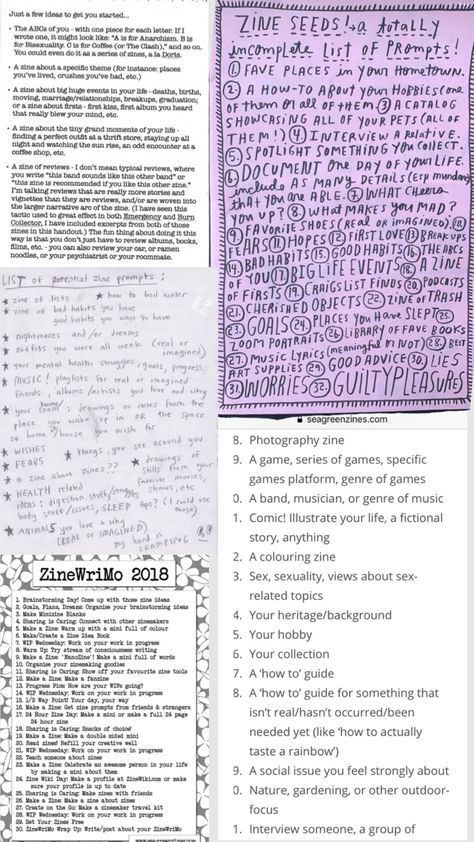 Just a few ideas to get you started...
• The ABCs of you - with one piece for each letter. If I
wrote one, it might look like: "A is for Anarchism. B is
for Bisexuality. C is for Coffee (or The Clash)," and so on.
You could even do it as a series of zines, a la Doris.
• A zine about a specific theme (for instance: places
you've lived, crushes you've had, etc.)
• A zine about big huge events in your life - deaths, births,
moving, marriage/relationships, breakups, graduation;
or a zine about firsts - first kiss, first album you heard
that really blew your mind, etc.
• A zine about the tiny grand moments of your life -
finding a perfect outfit at a thrift store, staying up all
night and watching the sun rise, an odd encounter at a
coffee shop, etc.
• A zine of reviews - I don't mean typical reviews, where
you write "this band sounds like this other band" or
"this zine is recommended if you like this other zine."
I'm talking reviews that are really more stories and
vignettes than they are reviews, and/or are woven into
the larger narrative arc of the zine. (I have seen this
tactic used to great effect in both Emergency and Burn
Collector. I have included excerpts from both of those
zines in this handout.) The fun thing about doing it this
way is that you don't just have to review albums, books,
films, etc. - you can also review your car, or ramen
noodles, or your psychiatrist or your roommate.
ZINE SEEDS! → a totally
incomplete List of Prompts!
① FAVE PLACES in YOUR HOMETOWN.
② A HOW-TO ABOUT YOUR HOBBIES (one
of them or all of them. ③ A CATALOG
SHOWCASING ALL OF YOUR PETS (ALL OF
THEM!) ④ INTERVIEW A RELATIVE.
⑤ SPOTLIGHT SOMETHING YOU COLLECT.
⑥ DOCUMENT ONE DAY OF YOUR LIFE.
include AS MANY DETAILS (Esp mundane)
THAT YOU ARE ABLE. ⑦ WHAT CHEERS
YOU UP? ⑧ WHAT MAKES YOU MAD?
⑨ FAVORITE SHOES (REAL or imagined). ⑩
FEARS ⑪ HOPES ⑫ FIRST LOVE ⑬ BREAKUPS
⑭ BAD HABITS ⑮ GOOD HABITS ⑯ THE ABCs
OF YOU ⑰ BIG LIFE EVENTS ⑱ A ZINE
OF FIRSTS ⑲ CRAIGSLIST FINDS ⑳ PODCASTS
㉑ CHERISHED OBJECTS ㉒ ZINE OF TRASH
㉓ GOALS ㉔ PLACES YOU HAVE SLEPT ㉕
ZOOM PORTRAITS ㉖ LIBRARY OF FAVE BOOKS
㉗ MUSIC LYRICS (MEANINGFUL OR NOT) ㉘ BEST
ART SUPPLIES ㉙ GOOD ADVICE ㉚ LIES
㉛ WORRIES ㉜ GUILTY PLEASURE
seagreenzines.com
LIST of potential zine prompts:
★ zine of lists ★ how to boil water
★ zine of bad habits you have
good habits you want to have
★ nightmares and/or dreams
★ outfits you wore all week (real or
imagined)
★ your mental health struggles, goals, progress,
★ MUSIC! playlists for real or imagined
friends, albums/artists you love and why
★ your room: drawings or notes from the
place you wake up in OR the space
or home/house you wish for
★ WISHES ★ things you see around you
★ FEARS
★ a zine about zines?? ★ drawings of
stills from your
favorite movies,
shows, etc
★ HEALTH related
ideas: digestion stuff/struggles
body stuff/issues, SLEEP tips? (I could use
those)
★ ANIMALS you love & why
(REAL or IMAGINED)
my hand is
CRAMPING
ZineWriMo 2018
1. Brainstorming Day! Come up with those zine ideas
2. Goals, Plans, Dreams: Organise your brainstorming ideas
3. Make Minizine Blanks
4. Sharing is Caring: Connect with other zinemakers
5. Make a Zine: Warm up with a mini full of colour
6. Make/Create a Zine Idea Book
7. WIP Wednesday: Work on your work in progress
8. Warm Up: Try stream of consciousness writing
9. Make a Zine: 'NanoZine'! Make a mini full of words
10. Organise your zinemaking goodies
11. Sharing is Caring: Show off your favourite zine tools
12. Make a Zine: Make a fanzine
13. Progress Pics: How are your WIPs going?
14. WIP Wednesday: Work on your work in progress
15. 1/2 Way Point! Your day, your way
16. Make a Zine: Get zine prompts from friends & strangers
17. 24 Hour Zine Day: Make a mini or make a full 24 page
24 hour zine
18. Sharing is Caring: Snacks of choice!
19. Make a Zine: Make a double sided mini
20. Read zines! Refill your creative well
21. WIP Wednesday: Work on your work in progress
22. Teach someone about zines
23. Make a Zine: Celebrate an awesome person in your life
by making a mini about them
24. Zine Wiki Day: Make a profile at ZineWiki.com or make
sure your profile is up to date
25. Sharing is Caring: Make zines with friends
26. Make a Zine: Make a zine about zines
27. Create on the Go: Make a zinemaker travel kit
28. WIP Wednesday: Work on your work in progress
29. Set Your Zines Free
30. ZineWriMo Wrap Up: Write/post about your ZineWriMo
www.seagreenzines.com
8. Photography zine
9. A game, series of games, specific
games platform, genre of games
0. A band, musician, or genre of music
1. Comic! Illustrate your life, a fictional
story, anything
2. A colouring zine
3. Sex, sexuality, views about sex-
related topics
4. Your heritage/background
5. Your hobby
6. Your collection
7. A 'how to' guide
8. A 'how to' guide for something that
isn't real/hasn't occurred/been
needed yet (like 'how to actually
taste a rainbow')
9. A social issue you feel strongly about
0. Nature, gardening, or other outdoor-
focus
1. Interview someone, a group of